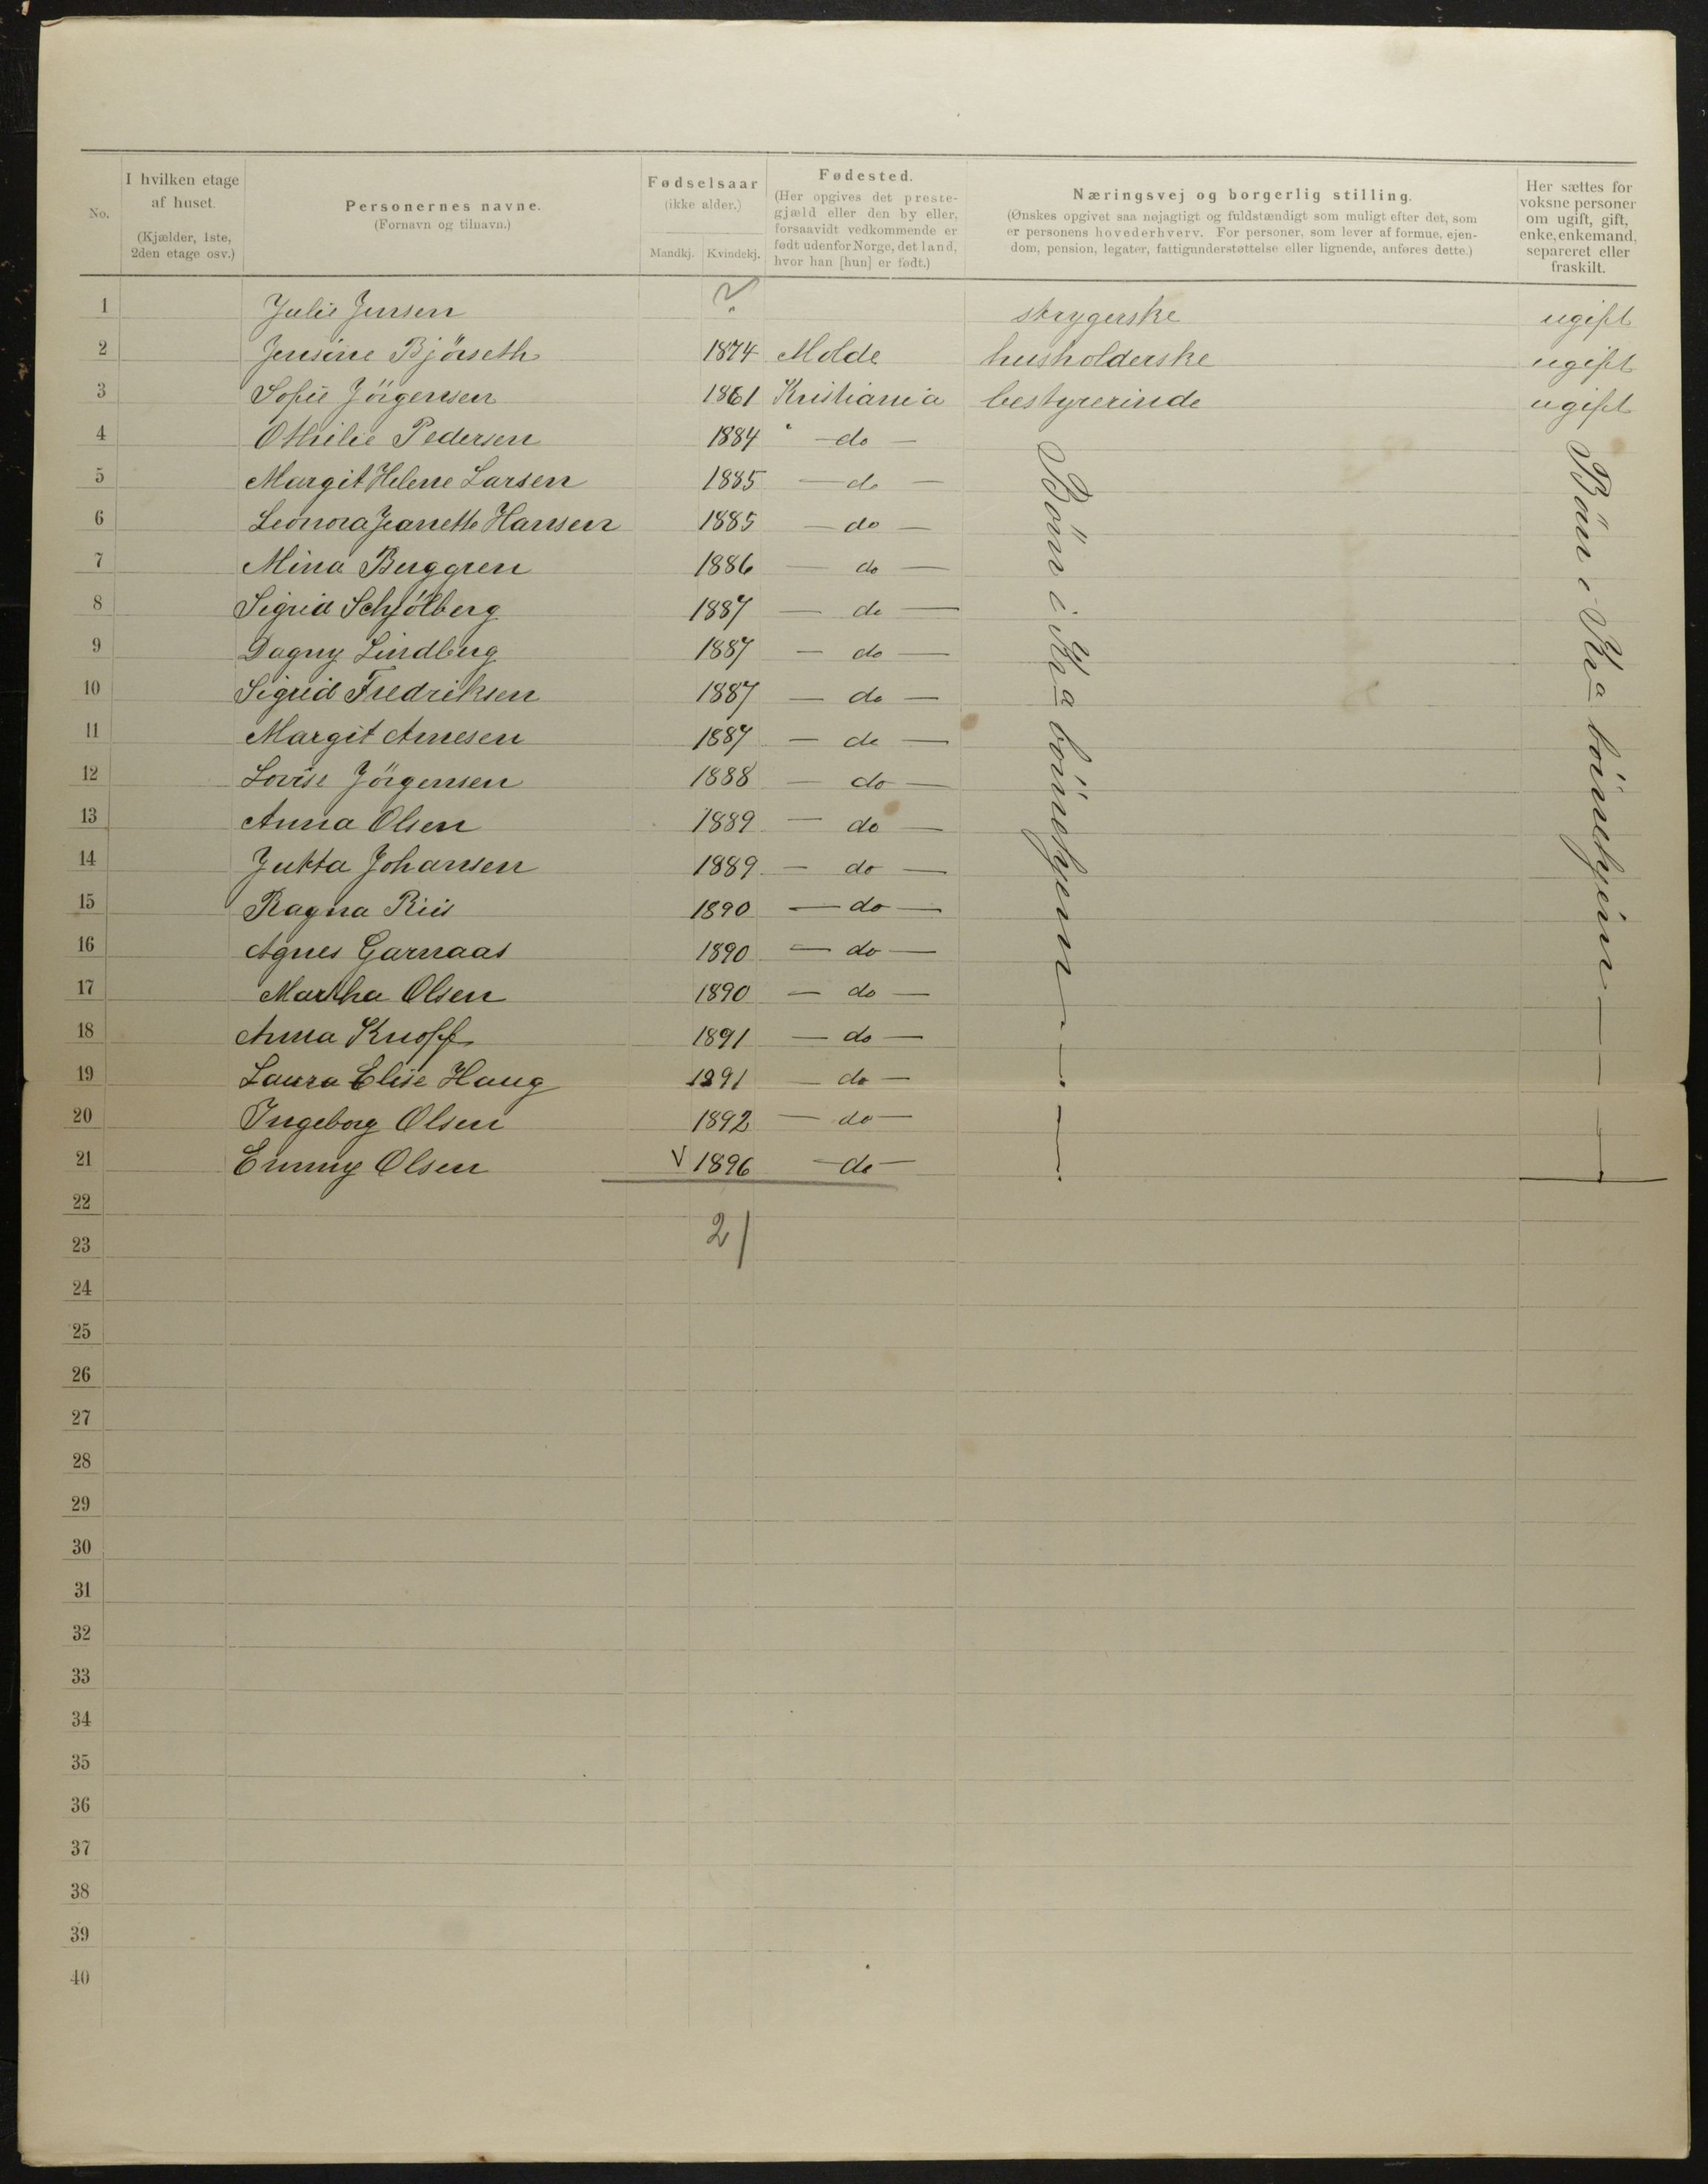 No.
I hvilken etage af huset.
(Kjælder, 1ste, 2den etage osv.)
Personernes navne.
(Fornavn og tilnavn.)
Fødselsaar
(ikke alder.)
Mandkj. Kvindekj.
Fødested.
(Her opgives det prestegjæld eller den by eller, forsaavidt vedkommende er født udenfor Norge, det land, hvor han [hun] er født.)
Næringsvej og borgerlig stilling.
(Ønskes opgivet saa nøjagtigt og fuldstændigt som muligt efter det, som er personens hovederhverv. For personer, som lever af formue, ejendom, pension, legater, fattigunderstøttelse eller lignende, anføres dette.)
Her sættes for voksne personer om ugift, gift, enke, enkemand, separeret eller fraskilt.
1 Julie Jensen ? strygerske ugift
2 Jensine Bjørseth 1874 Molde husholderske ugift
3 Sofie Jörgensen 1861 Kristiania bestyrerinde ugift
4 Othilie Pedersen 1884 " — do —
5 Margit Helene Larsen 1885 — do —
6 Leonora Jeanette Hansen 1885 — do —
7 Mina Berggren 1886 — do —
8 Sigrid Schjölberg 1887 — do —
9 Dagny Lindberg 1887 — do —
10 Sigrid Fredriksen 1887 — do —
11 Margit Arnesen 1887 — do —
12 Lovise Jörgensen 1888 — do —
13 Anna Olsen 1889 — do —
14 Jukta Johansen 1889 — do —
15 Ragna Riis 1890 — do —
16 Agnes Garnaas 1890 — do —
17 Martha Olsen 1890 — do —
18 Anna Knoff 1891 — do —
19 Laura Elise Haug 1891 — do —
20 Ingeborg Olsen 1892 — do —
21 Emmy Olsen V 1896 — do —
Börn i Kra börnehjem — —
Börn i Kra börnehjem — —
22
23 21
24
25
26
27
28
29
30
31
32
33
34
35
36
37
38
39
40